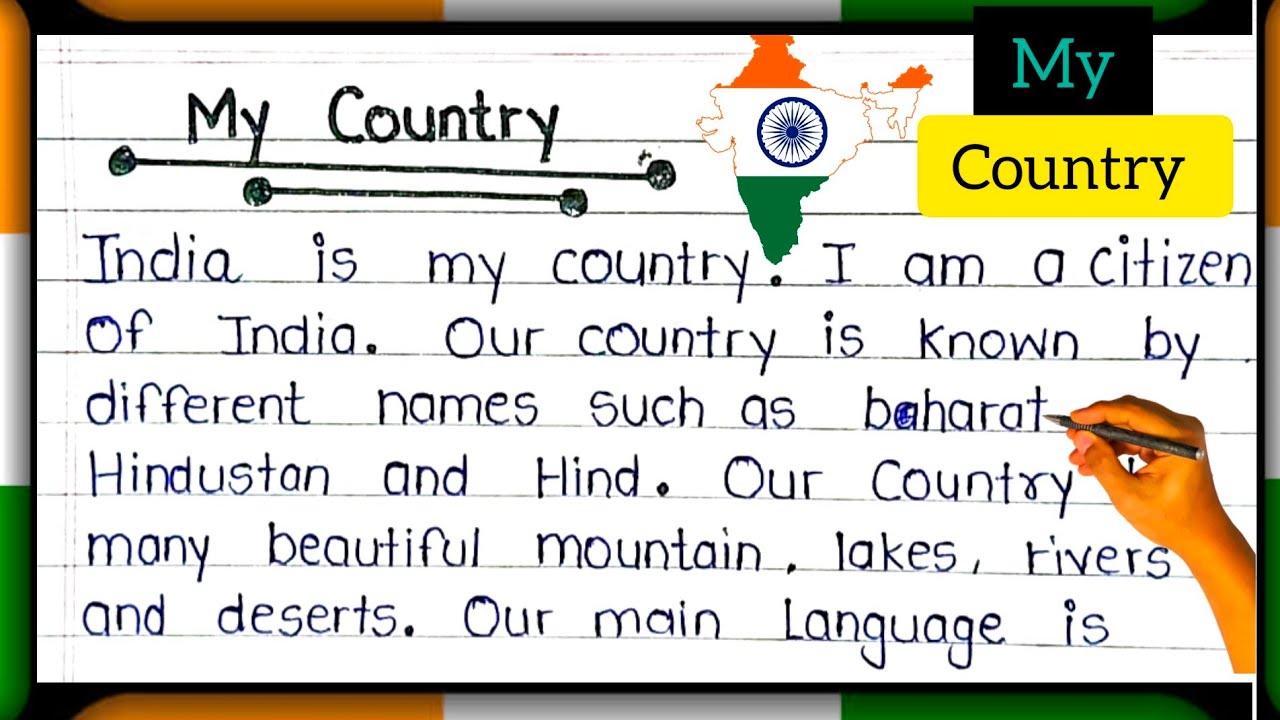 My Country
My
Country
India is my country. I am a citizen
of India. Our country is known by
different names such as baharat
Hindustan and Hind. Our Country
many beautiful mountain. lakes, rivers
and deserts. Our main Language is